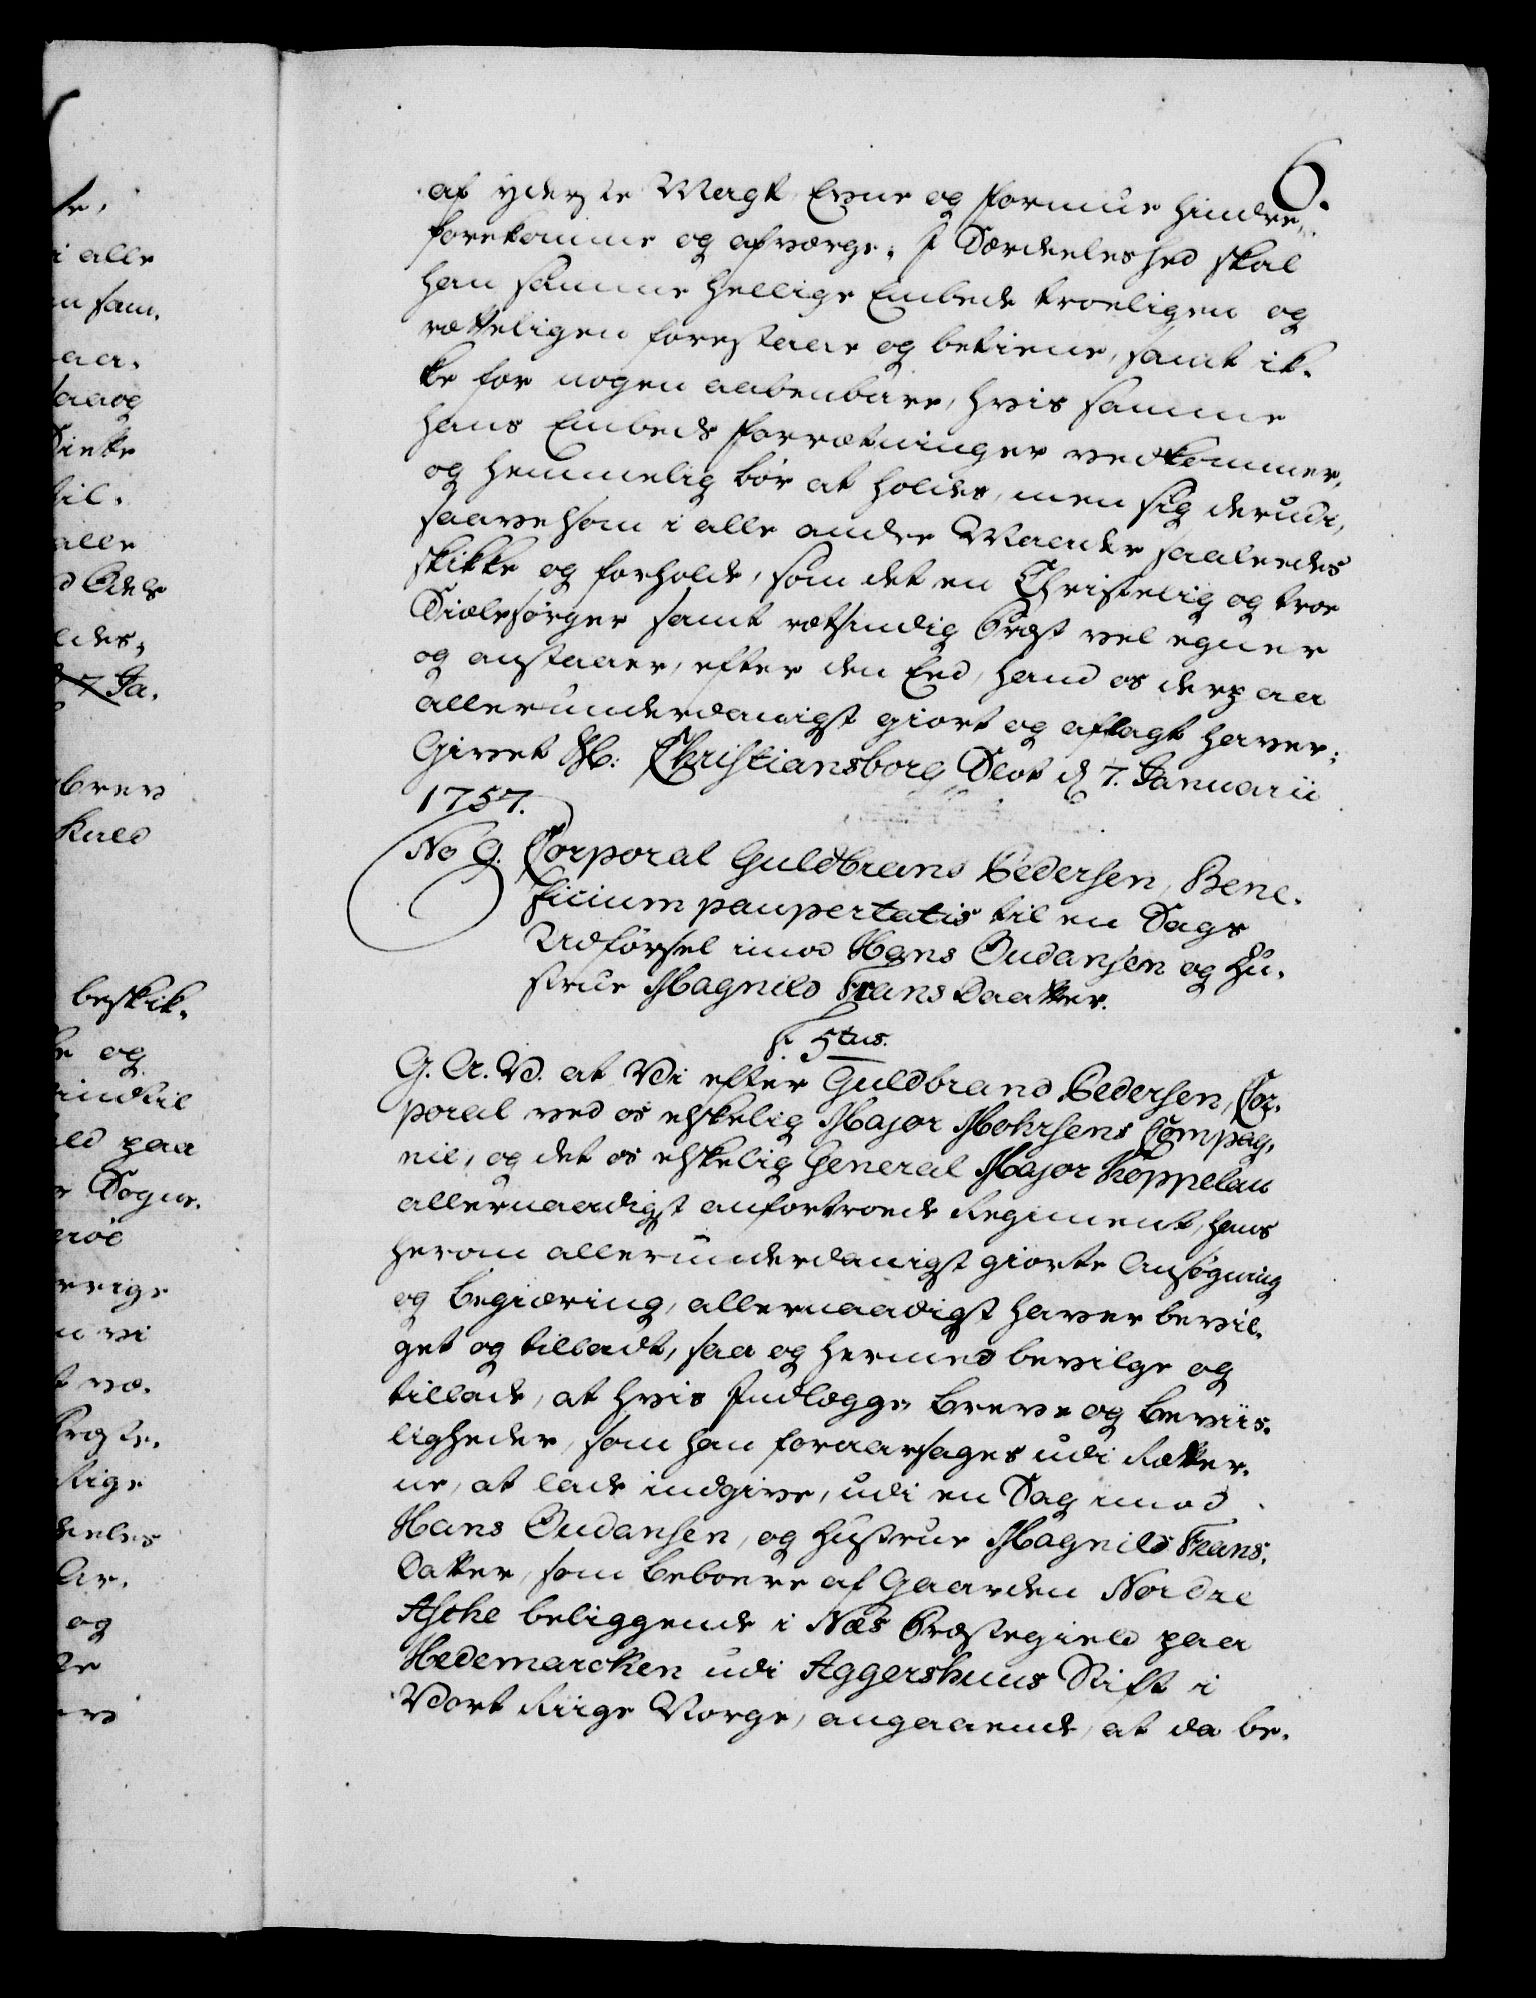 6.
af yderste Magt, Evne og formue hindre,
forekomme og afværge. I Særdeleshed skal
han samme hellige Embede troeligen og
rætteligen forestaae og betiene, samt ik-
ke for nogen aabenbare, hvis samme
hans Embeds forrætninger vedkommer,
og hemmelig bør at holdes, men sig derudi,
saavelsom i alle andre Maader saaledes
skikke og forholde, som det en Christelig og troe
Siælesørger samt rætsindig Præst vel egner
og anstaaer, efter den Eed, hand os derpaa
allerunderdanigst giort og aflagt haver.
Givet Christiansborg Slot d 7. Januarii
1757.
No 9. Corporal Guldbrand Pedersen, Bene-
ficium paupertatis til en Sags
Udførsel imod Hans Oudansen og Hu-
strue Magnild Frans Daatter.
F. 5tus.
G. A. V. at Vi efter Guldbrand Pedersen, Cor-
poral ved os elskelig Major Mohrsens Compag-
nie, og det os elskelig General Major Koppelau
allernaadigst anfortroede Regiment, hans
herom allerunderdanigst giorte Ansøgning
og Begiæring, allernaadigst haver bevil-
get og tilladt, saa og hermed bevilge og
tillade, at hvis Indlægge, Breve og Beviis-
ligheder, som han foraarsages udi Rætter-
ne, at lade indgive, udi en Sag imod
Hans Oudansen, og Hustrue Magnild Frans-
Datter, som Beboere af Gaarden Nordre
Aske beliggende i Næs Præstegield paa
Hedemarcken udi Aggershuus Stift i
Vort Riige Norge, angaaende, at da be-
i alle
saaog
alle
beskik-
og
paa
Sogne.
vi
og